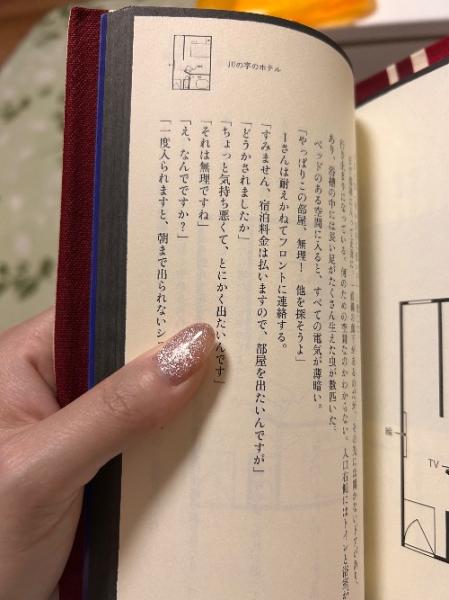 川の字のホテル
行き止まりになっている。何のための空間なのかわからない。入口右側にはトイレと浴室が
あり、浴槽の中には長い足がたくさん生えた虫が数匹いた。
ベッドのある空間に入ると、すべての電気が薄暗い。
「やっぱりこの部屋、無理！　他を探そうよ」
Iさんは耐えかねてフロントに連絡する。
「すみません、宿泊料金は払いますので、部屋を出たいんですが」
「どうかされましたか」
「ちょっと気持ち悪くて、とにかく出たいんです」
「それは無理ですね」
「え、なんでですか？」
「一度入られますと、朝まで出られないシ
TV